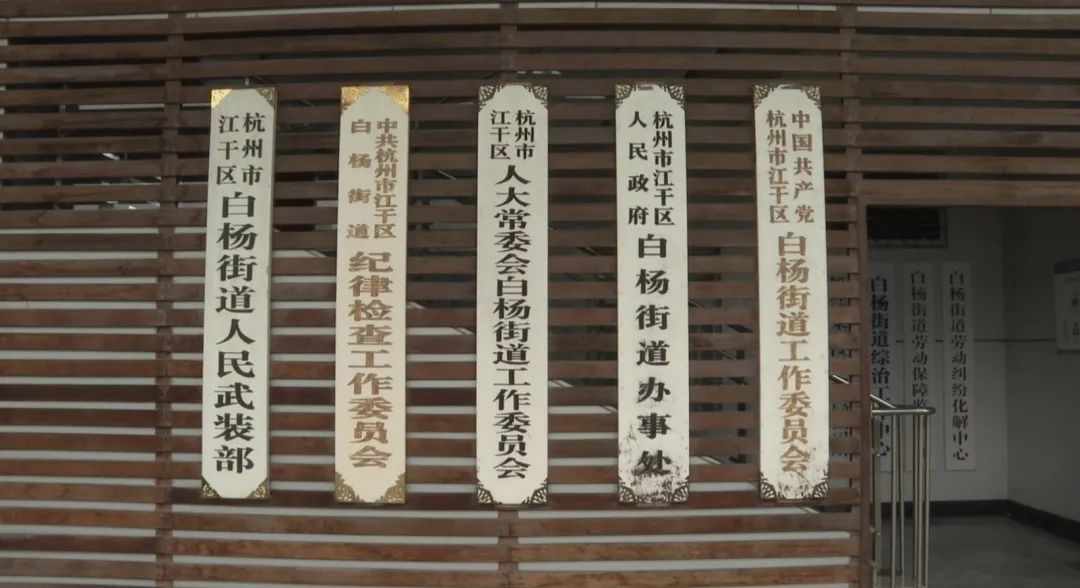 杭州市
江干区
白杨街道人民武装部
中共杭州市江干区
白杨街道
纪律检查工作委员会
杭州市
江干区
人大常委会白杨街道工作委员会
杭州市江干区
人民政府
白杨街道办事处
中国共产党
杭州市江干区
白杨街道工作委员会
白杨街道综治工
中心
白杨街道劳动保障监
白杨街道劳动纠纷化解中心